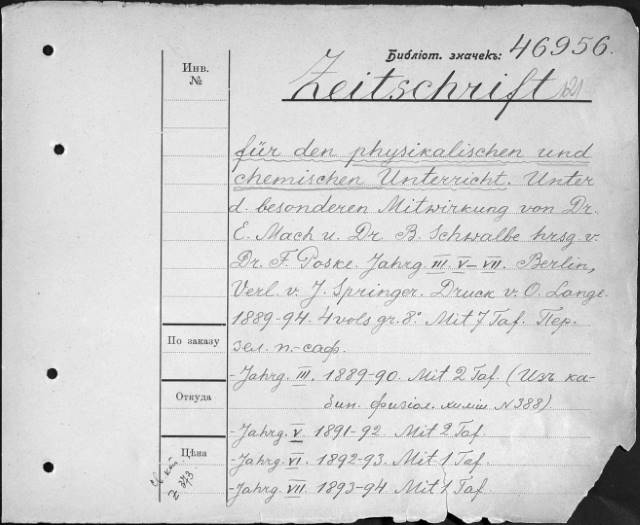 Библіот. значекъ: 46956.
Инв.
№
Zeitschrift
für den physikalischen und
chemischen Unterricht. Unter
d. besonderen Mitwirkung von Dr.
E. Mach u. Dr B. Schwalbe hrsg v.
Dr. F. Poske. Jahrg III. V–VII. Berlin,
Verl. v. J. Springer. Druck v. O. Lange.
1889-94. 4 vols gr. 8° Mit 7 Taf. Пер.
зел. п.-саф.
По заказу
-Jahrg. III. 1889-90. Mit 2 Taf. (Изъ ка-
бин. физіол. химіи N 388).
Откуда
-Jahrg. V 1891-92 Mit 2 Taf.
Цѣна
-Jahrg. VI 1892-93. Mit 1 Taf.
-Jahrg. VII 1893-94 Mit 1 Taf.